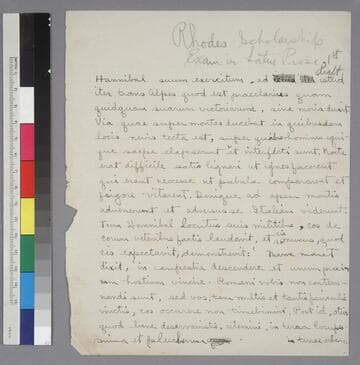 Rhodes Scholarship
Exam in Latin Prose 1st
Hannibal suum exercitum, ad istud
iter trans Alpes quod est praeclarius quam
quidquam suarum victoriarum, sine mora duxit
Via quae super montes ducebat in quibusdam
locis nivis tecta est, super quibus homines equi-
que saepe elapserunt et interfecti sunt. Nocte
erat difficile satis ligneri ut ignes facerent
qui erant necesse ut pabula compararent et
frigore vitarent. Denique ad apem montis
advenerunt et adversus se Italiam viderunt.
Tum Hannibal locutus suis militibus, eos de
eorum veteribus factis laudavit, et praemium, quod
eis expectavit, demonstravit. Nunc manet
dixit, in campestia descendere et unum proelium
cum hostium vincere. Romani vobis non contem-
nendi sunt, sed vos, tam multis et tantis periculis
victis, eos occurrere non timebimini. Post id, otio
quod bene deservavistis, utemini, in terra locuple-
tissima et pulcherrima